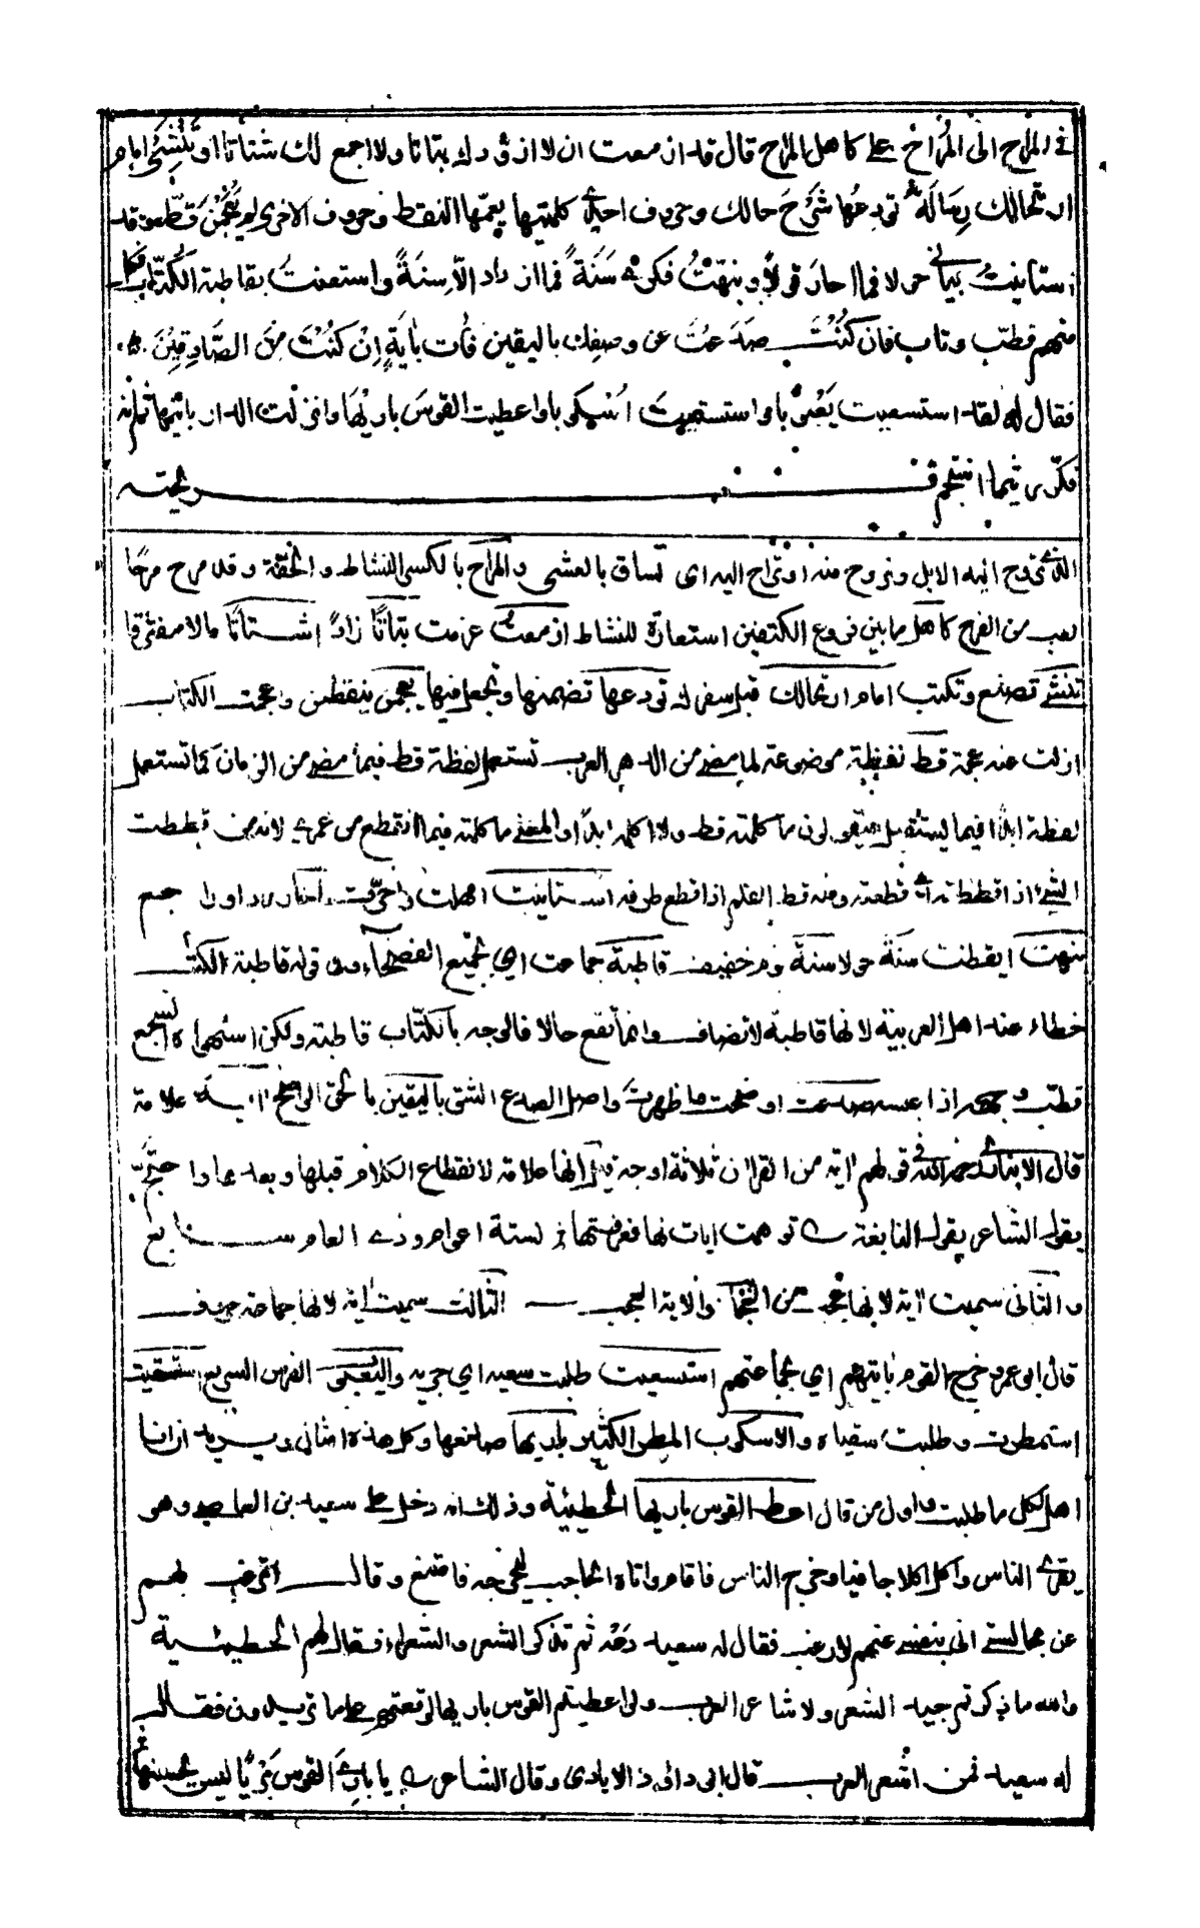 في المراح الى المُرَاخ على كاهل المراح قال قد ازمعت ان لا ازوّدك بتاتا ولا اجمع لك شتاتا او تُنْشِئَ امام
ارتحالك رِسَالَةً تودعُها شَرْحَ حالك وحروف احدى كلمتيها يعمّها النقط وحروف الاخرى لم يُعْجَمْنَ قطّ وقد
استانيتُ بياني حولا فما احار قولًا ونبّهْتُ فكري سَنَةً فما ازداد الّا سِنَةً واستعنتُ بقاطبة الكُتّاب فكل
منهم قطّب وتاب فان كُنْتَ صدعت عن وصفك باليقين فأت بآيَةٍ اِنْ كُنْتَ مِنَ الصَّادِقِيْنَ
فقال له لقد استسعيت يَعْبُوْبا واستسقيت اُسْكوبا واعطيت القوسَ باريْهَا وانزلت الدار بانيها ثم
فكّر ريثما استجم قريحته
الذي تروح اليه الابل وتروح منه او تراح اليه اى تساق بالعشى والمراح بالكسر النشاط والخفة وقد مرح مرحًا
لعب من الفرح كاهل ما بين فروع الكتفين استعارة للنشاط ازمعت عزمت بتاتًا زادًا شتاتًا مالا متفرقا
تنشئ تصنع وتكتب امام ارتحالك قبل سفرك تودعها تضمنها وتجعل فيها يعجمن ينقطن واعجمت الكتاب
ازلت عنه عجمة قط لفظة موضوعة لما مضى من الدهر العرب تستعمل لفظة قط فيما مضى من الزمان كما تستعمل
لفظة ابدًا فيما يستقبل فيقولون ما كلمته قط ولا اكلمه ابدًا والمعنى ما كلمته فيما انقطع من عمرى لانه من قططت
الشئ اذا قططته اى قطعته ومنه قط القلم اذا قطع طرفه استانيت امهلت واخرت احار رد اولا جم
نبهت ايقظت سنة حولا سنة نوم خفيف قاطبة جماعت اى بجميع الفصحاء وفى قوله قاطبة الكتاب
خطاء عند اهل العربية لانها قاطبة لا تضاف وانما تقع حالا فالوجه بالكتّاب قاطبة ولكن استهواه السجع
قطّب وجهه اذا عبسه صدعت اوضحت ما ظهرت واصل الصدع الشق باليقين بالحق الواضح اية علامة
قال الانبارى رحمه الله فى قولهم اية من القران ثلاثة اوجه قيل انها علامة لانقطاع الكلام قبلها وبعدها واحتجّ
بقول الشاعر يقول النابغة توهمت ايات لها فعرفتها لستة اعوام وذا العام سابع
والثانى سميت اية لانها عجب من العجائب والاية العجب الثالث سميت اية لانها جماعة حروف
قال ابو عمرو خرج القوم بايتهم اي بجماعتهم استسعيت طلبت سعيه اي جريه واليعبوب الفرس السريع استسقيت
استمطرت وطلبت سقياه والاسكوب المطر الكثير باريها صانعها وكل هذه امثال يريد انا
اهل لكل ما طلبت واول من قال اعط القوس باريها الحطيئة وذلك انه دخل على سعيد بن العاص وهو
يقرى الناس واكل اكلا جافيا وخرج الناس فاقام واتاه الحاجب ليخرجه فامتنع وقال اترغب بهم
عن مجالستى انى بنفسى عنهم لارغب فقال له سعيد دعه ثم تذاكر الشعر والشعراء فقال لهم الحطيئة
والله ما ذكرتم جيد الشعر ولا شاعر العرب ولو اعطيتم القوس باريها لوقعتم على ما تريدون فقال
له سعيد فمن اشعر العرب قال ابى دائود الايادى وقال الشاعر يا بارى القوس بَرْيًا ليس يحسنها